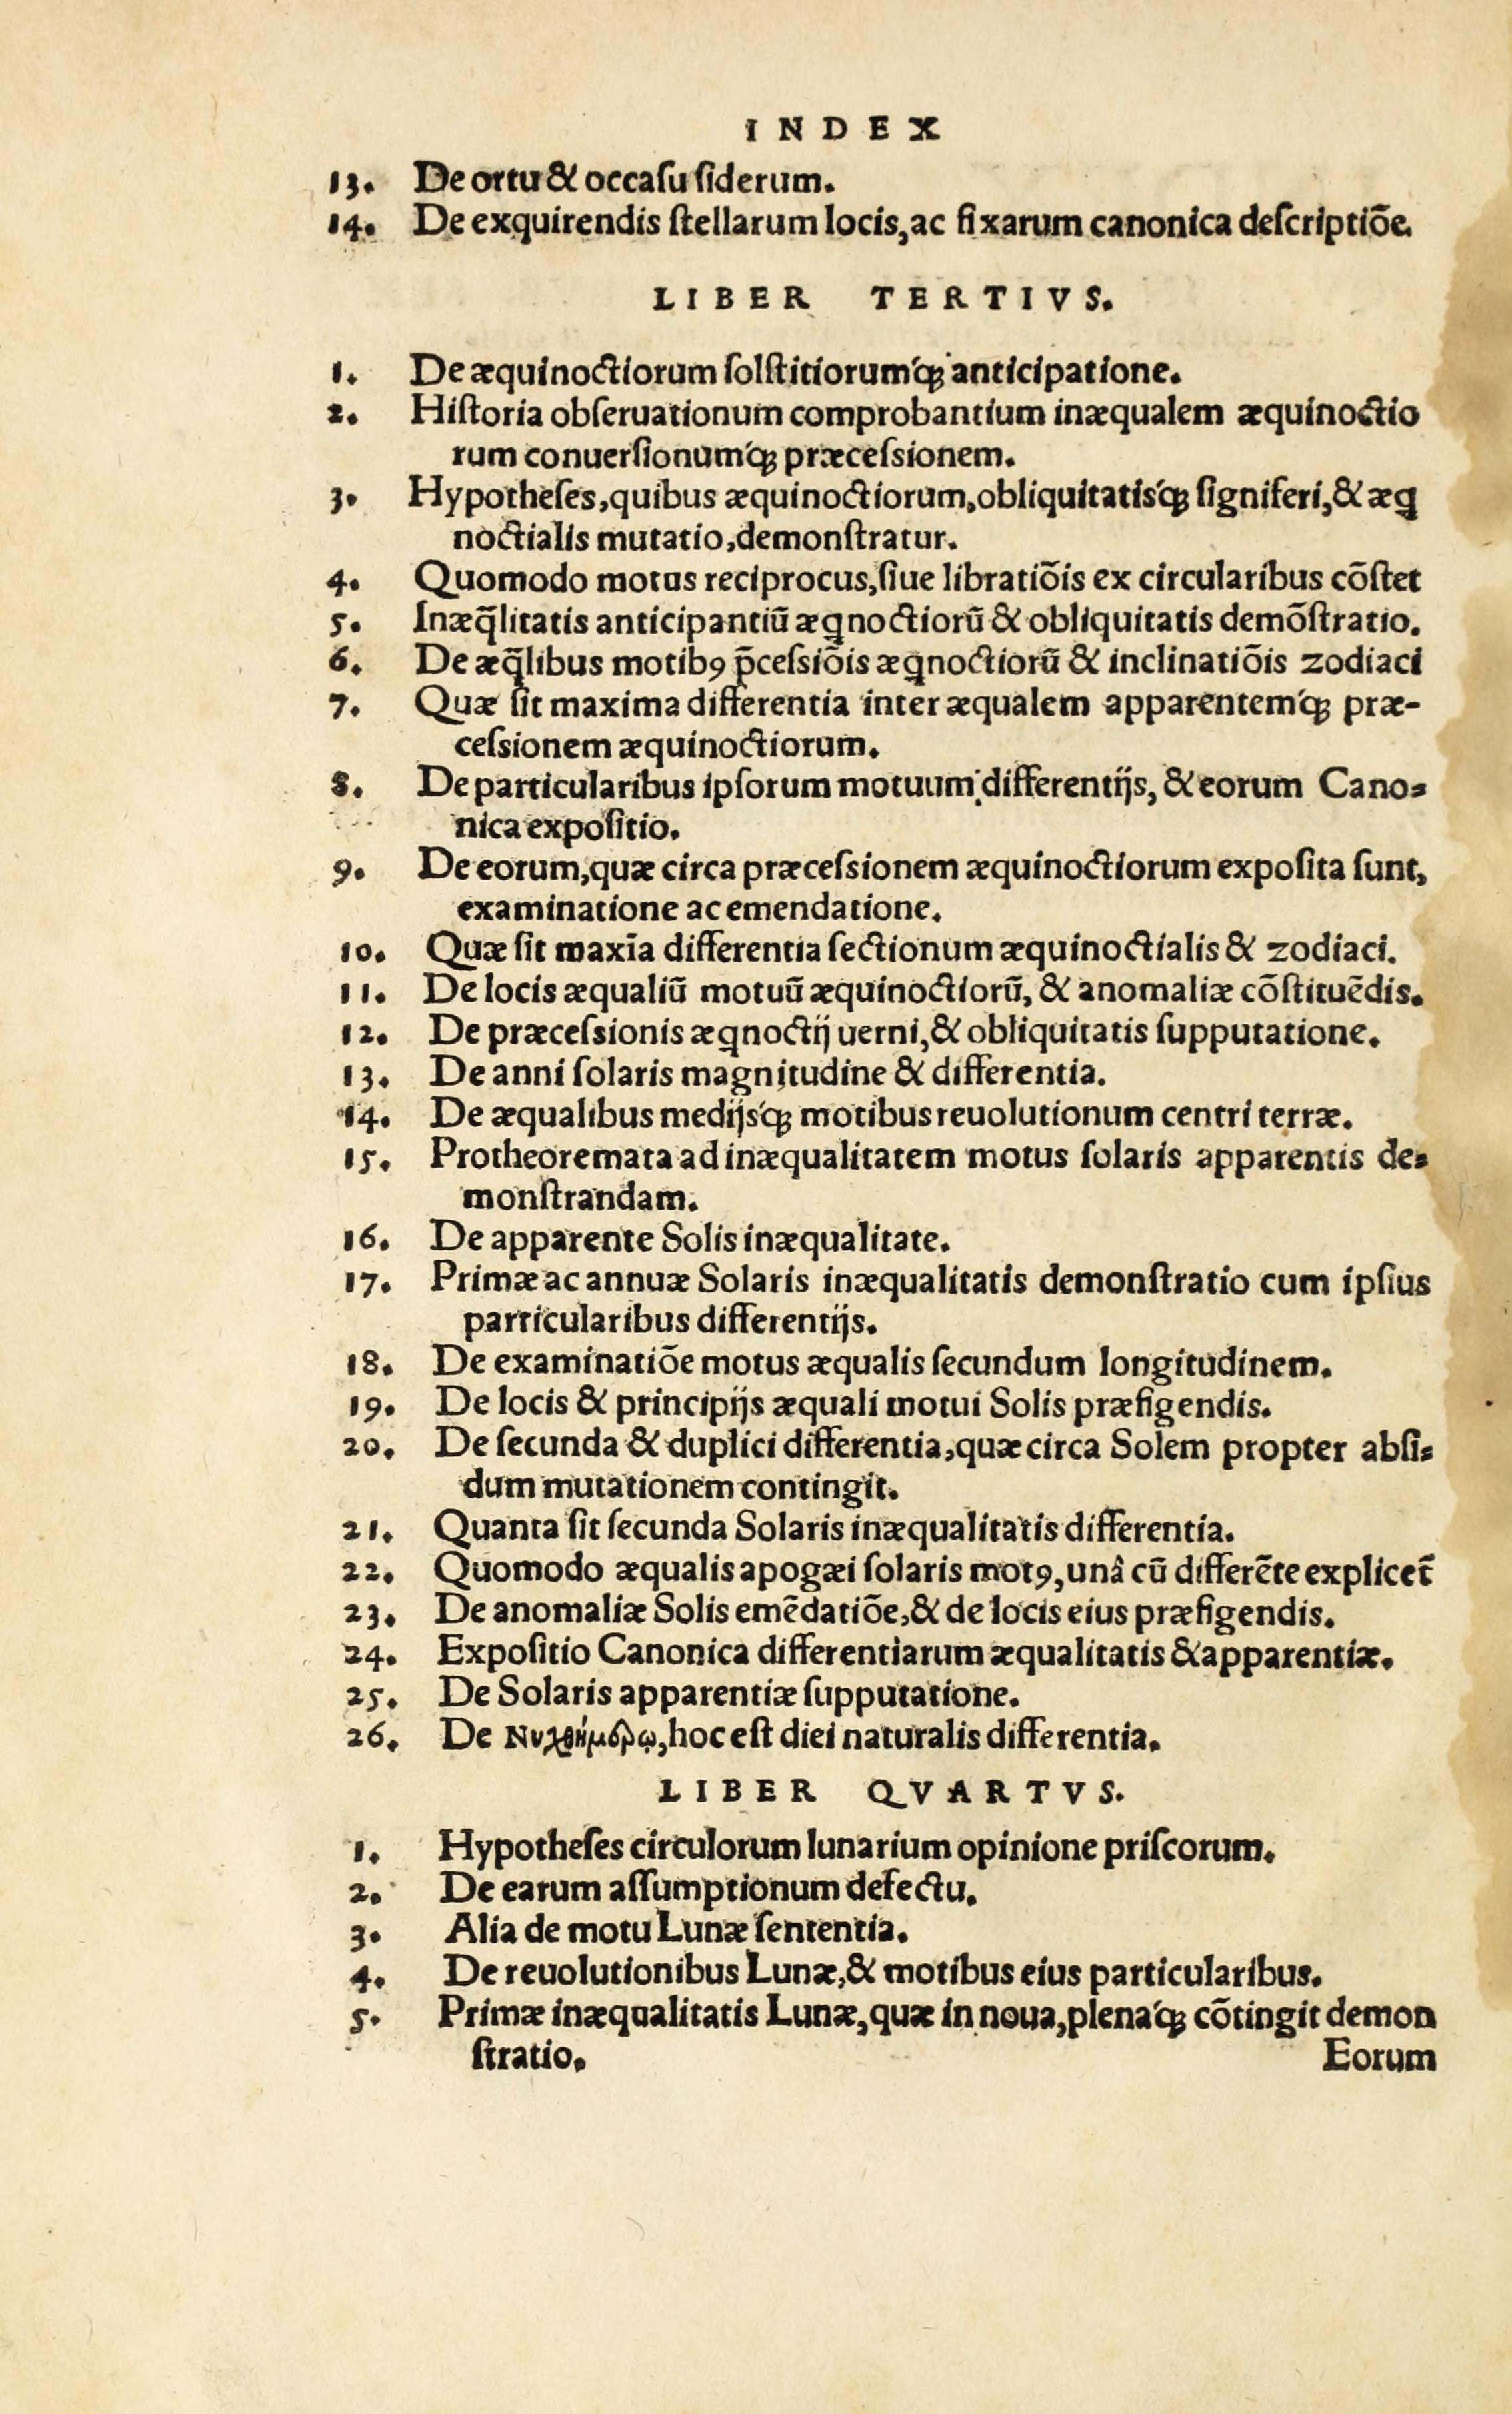 INDEX
13. De ortu & occaſu ſiderum.
14. De exquirendis ſtellarum locis, ac fixarum canonica deſcriptiõe.
LIBER TERTIVS.
1. De æquinoctiorum ſolſtitioruḿq; anticipatione.
2. Hiſtoria obſeruationum comprobantium inæqualem æquinoctio
rum conuerſionuḿq; præceſsionem.
3. Hypotheſes, quibus æquinoctiorum, obliquitatiśq; ſigniferi, & æꝗ
noctialis mutatio, demonſtratur.
4. Quomodo motus reciprocus, ſiue libratiõis ex circularibus cõſtet
5. Inæq̃litatis anticipantiũ æꝗnoctiorũ & obliquitatis demõſtratio.
6. De æq̃libus motibꝰ p̃ceſsiõis æꝗnoctiorũ & inclinatiõis zodiaci
7. Quæ ſit maxima differentia inter æqualem apparenteḿq; præ-
ceſsionem æquinoctiorum.
8. De particularibus ipſorum motuum differentijs, & eorum Cano-
nica expoſitio.
9. De eorum, quæ circa præceſsionem æquinoctiorum expoſita ſunt,
examinatione ac emendatione.
10. Quæ ſit maxĩa differentia ſectionum æquinoctialis & zodiaci.
11. De locis æqualiũ motuũ æquinoctiorũ, & anomaliæ cõſtituẽdis.
12. De præceſsionis æꝗnoctij uerni, & obliquitatis ſupputatione.
13. De anni ſolaris magnitudine & differentia.
14. De æqualibus medijśq; motibus reuolutionum centri terræ.
15. Protheoremata ad inæqualitatem motus ſolaris apparentis de-
monſtrandam.
16. De apparente Solis inæqualitate.
17. Primæ ac annuæ Solaris inæqualitatis demonſtratio cum ipſius
particularibus differentijs.
18. De examinatiõe motus æqualis ſecundum longitudinem.
19. De locis & principijs æquali motui Solis præfigendis.
20. De ſecunda & duplici differentia, quæ circa Solem propter abſi-
dum mutationem contingit.
21. Quanta ſit ſecunda Solaris inæqualitatis differentia.
22. Quomodo æqualis apogæi ſolaris motꝰ, unâ cũ differẽte explicet̃
23. De anomaliæ Solis emẽdatiõe, & de locis eius præfigendis.
24. Expoſitio Canonica differentiarum æqualitatis & apparentiæ.
25. De Solaris apparentiæ ſupputatione.
26. De Νυχθημέρῳ, hoc eſt diei naturalis differentia.
LIBER QVARTVS.
1. Hypotheſes circulorum lunarium opinione priſcorum.
2. De earum aſſumptionum defectu.
3. Alia de motu Lunæ ſententia.
4. De reuolutionibus Lunæ, & motibus eius particularibus.
5. Primæ inæqualitatis Lunæ, quæ in noua, plená q; cõtingit demon
ſtratio.
Eorum